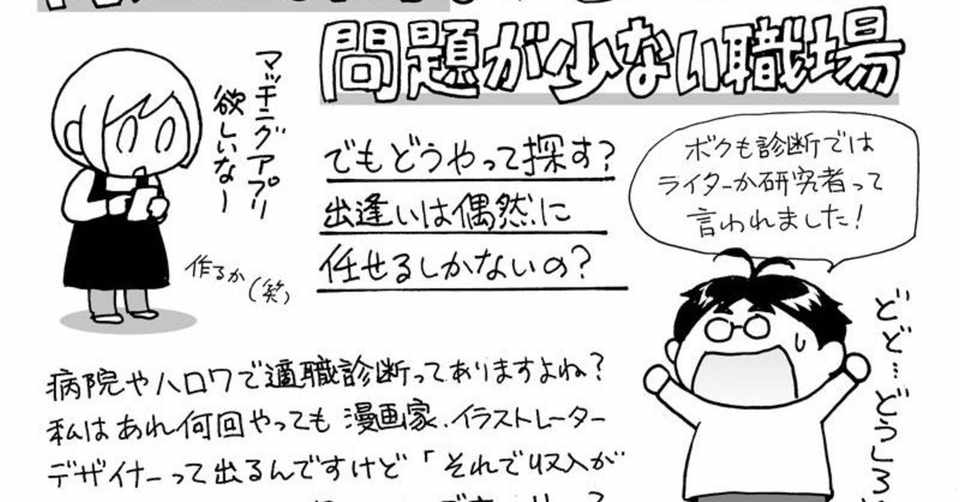 問題が少ない職場
マッチングアプリ
欲しいなー
作るか(笑)
でもどうやって探す?
出逢いは偶然に
任せるしかないの?
ボクも診断では
ライターか研究者って
言われました!
どど…どうしろ
病院やハロワで適職診断ってありますよね?
私はあれ何回やっても漫画家.イラストレーター
デザイナーって出るんですけど「それで収入が